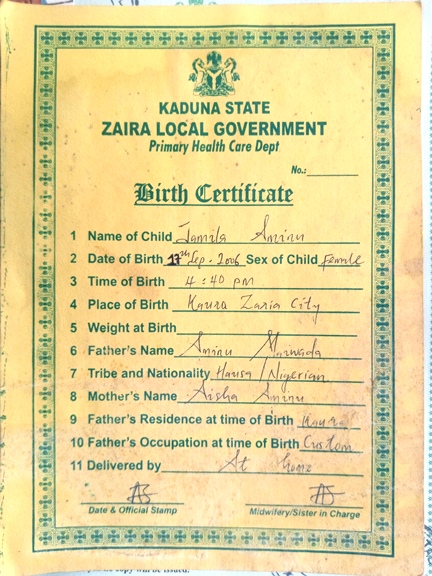 KADUNA STATE
ZAIRA LOCAL GOVERNMENT
Primary Health Care Dept
No.:
Birth Certificate
1 Name of Child Jamila Aminu
2 Date of Birth 17th Sep. 2006 Sex of Child Female
3 Time of Birth 4:40 pm
4 Place of Birth Kaura Zaria City
5 Weight at Birth
6 Father's Name Aminu
7 Tribe and Nationality Hausa / Nigerian
8 Mother's Name Aisha Aminu
9 Father's Residence at time of Birth Kaura
10 Father's Occupation at time of Birth Custom
11 Delivered by At home
Date & Official Stamp Midwifery/Sister in Charge
copy will be issued.